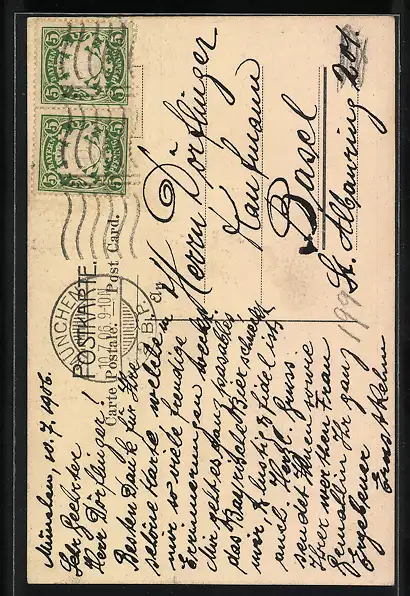 München, 10. 7. 1906.
Sehr geehrter
Herr Dörflinger!
Besten Dank für Ihre
schöne Karte welche in
mir so viele freudige
Erinnerungen weckt.
Mir geht es ganz passabel
das Bayrische Bier schmeckt
mir, & lustig & fidel ist's
auch. Herzl. Gruss
sendet Ihnen sowie
Ihrer werthen Frau
Gemahlin Ihr ganz
Ergebener
Ernst Rehm
POSTKARTE.
Carte Postale. Post Card.
MÜNCHEN
10.7.06. 9-10
B.P.
BAYERN
5
5
BAYERN
5
5
Herrn Dörflinger
Kaufmann
Basel
St. Albanring 201.